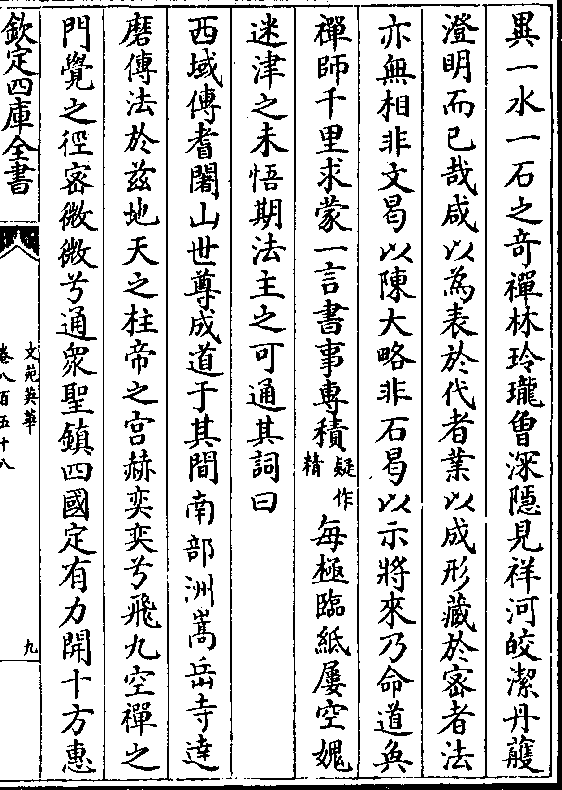 異一水一石之奇禪林玲瓏曾深隱見祥河皎潔丹雘
澄明而已哉咸以為表於代者業以成形藏於密者法
亦無相非文曷以陳大略非石曷以示將來乃命道奐
禪師千里求蒙一言書事專積疑作精每極臨紙屢空媿
迷津之未悟期法主之可通其詞曰
西域傳耆闍山世尊成道于其間南部洲嵩岳寺達
磨傳法於兹地天之柱帝之宫赫奕奕兮飛九空禪之
門覺之徑密微微兮通衆聖鎮四國定有力開十方惠
欽定四庫全書
文苑英華
卷八百五十八
九